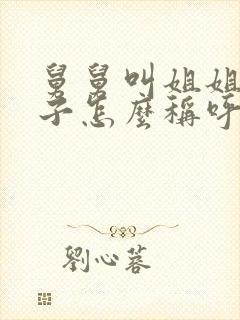 舅舅叫姐姐
子怎麼稱呼
劉心蓉